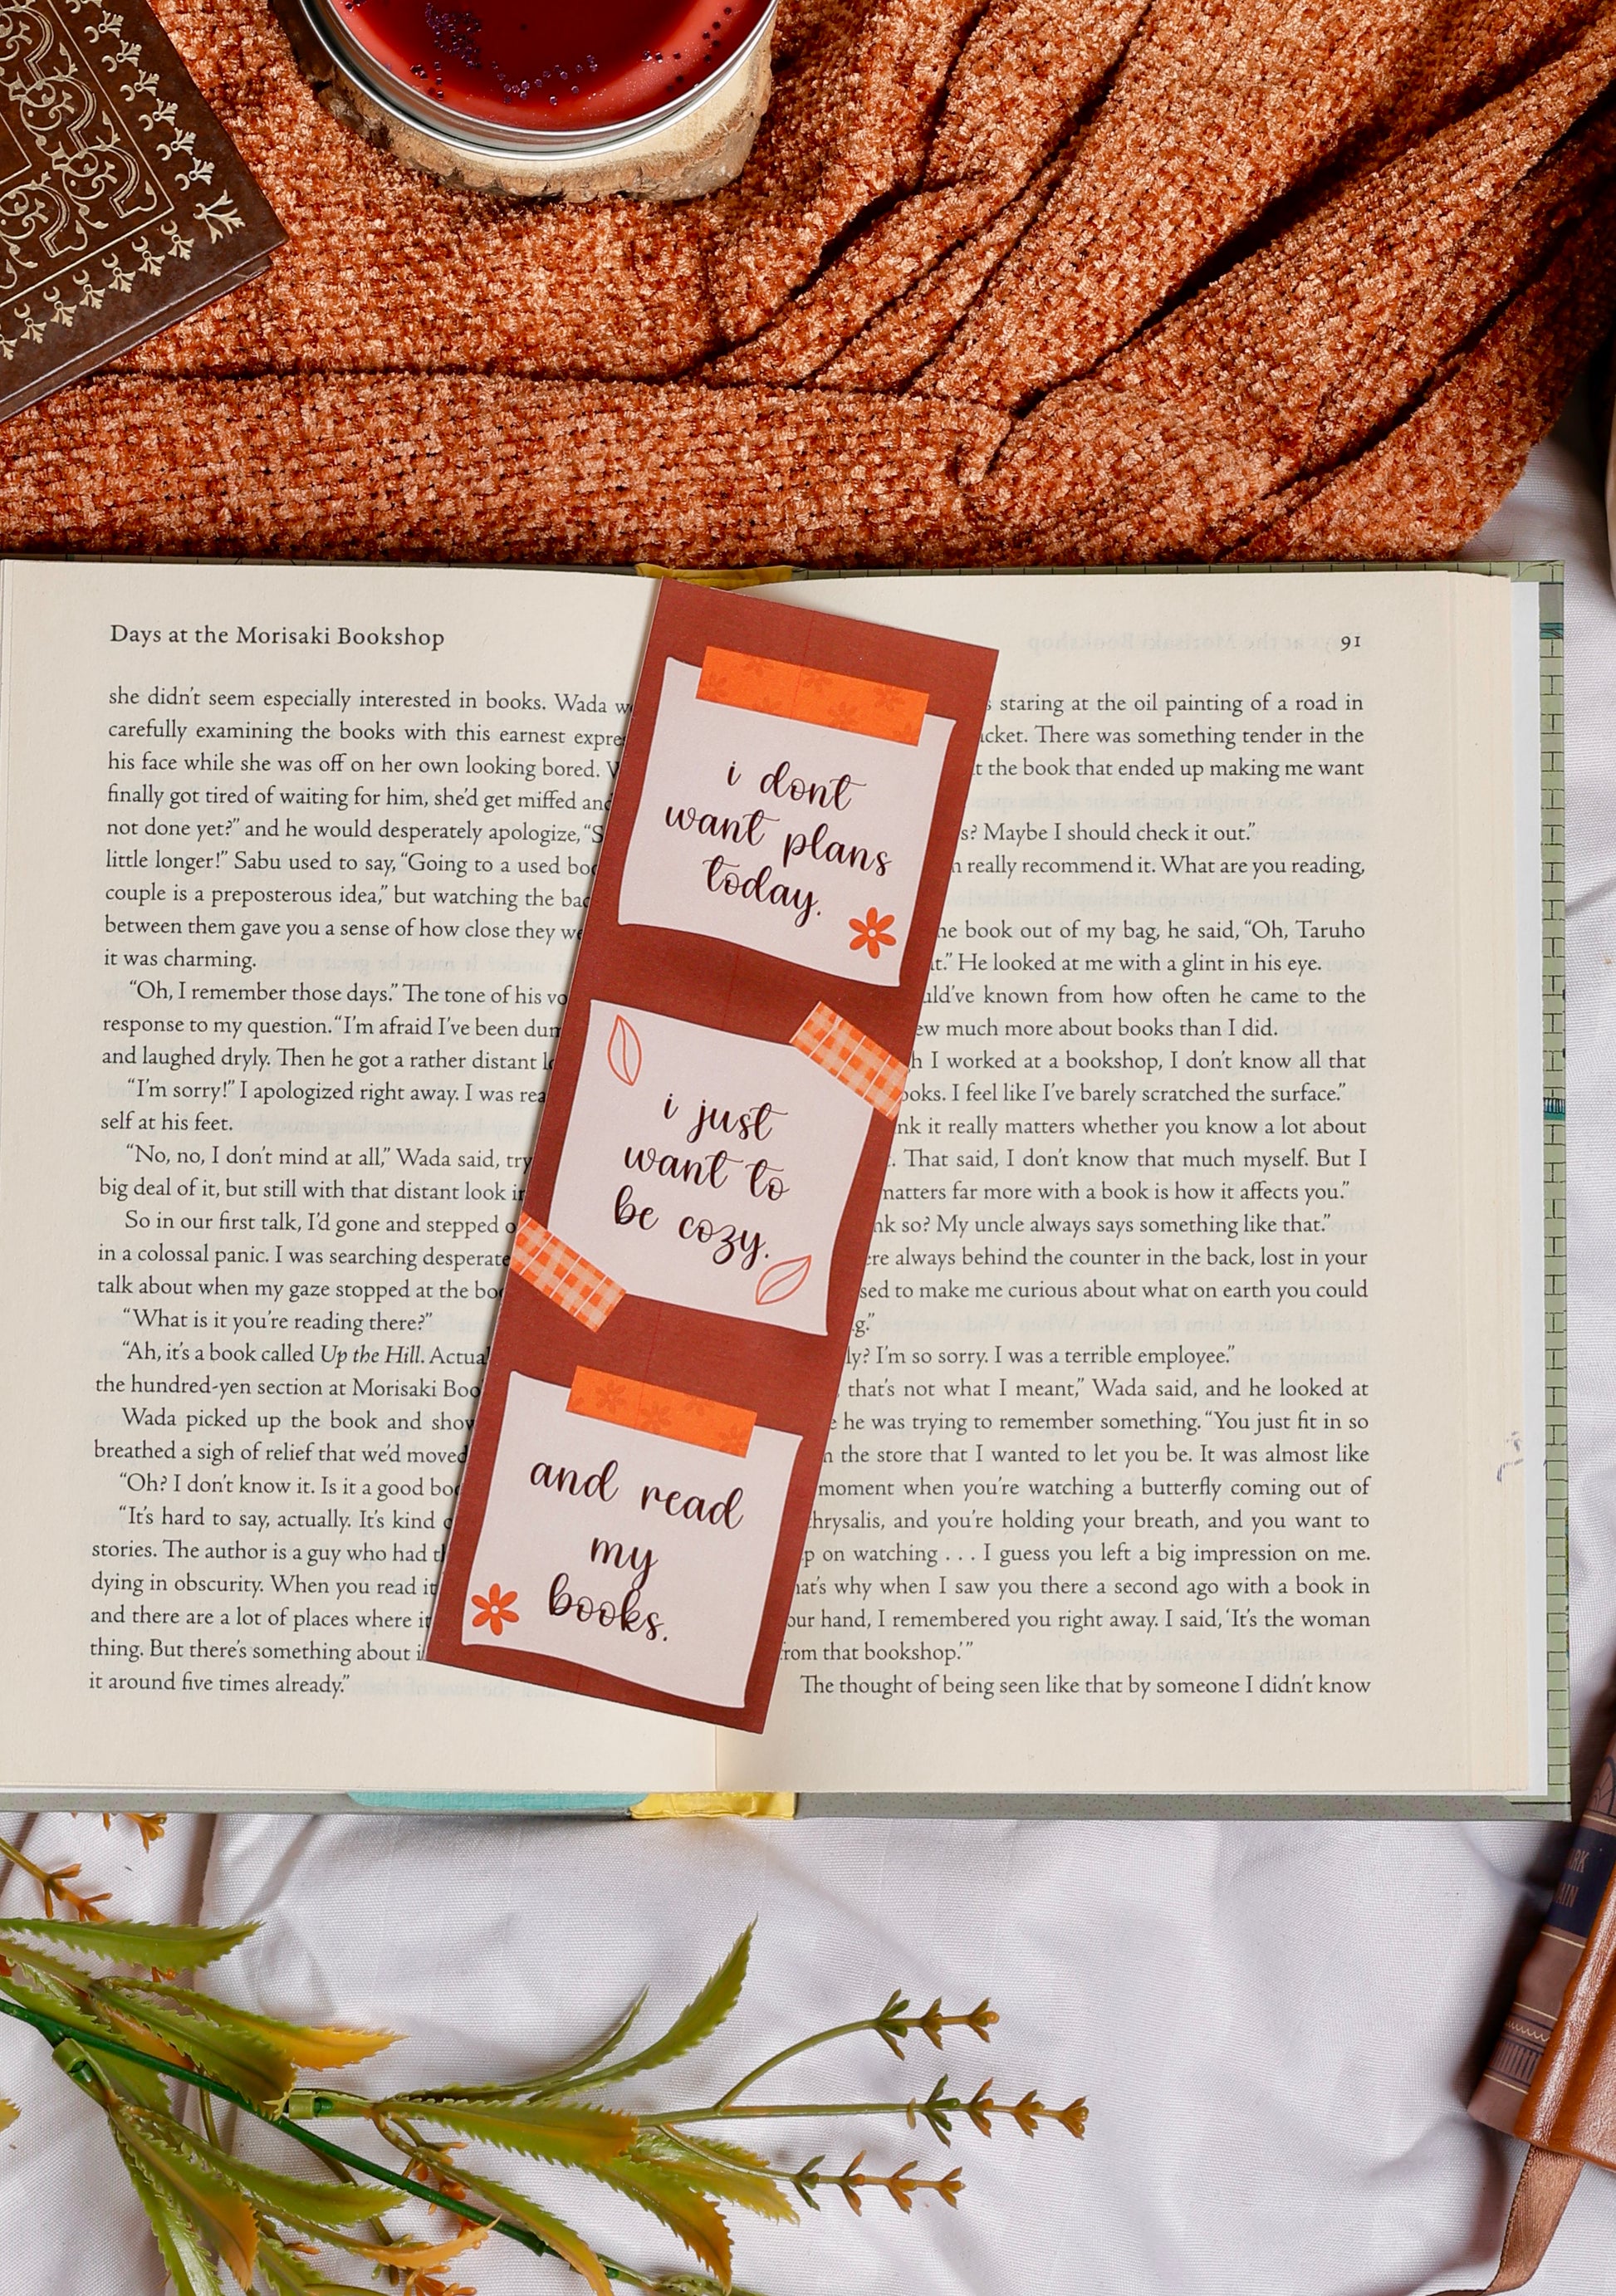 Days at the Morisaki Bookshop
she didn't seem especially interested in books. Wada
carefully examining the books with this earnest
his face while she was off on her own looking bored.
finally got tired of waiting for him, she'd get miffed and
not done yet?” and he would desperately apologize, “
little longer!” Sabu used to say, “Going to a used
couple is a preposterous idea,” but watching the
between them gave you a sense of how close they
it was charming.
“Oh, I remember those days.” The tone of his
response to my question. “I'm afraid I've been
and laughed dryly. Then he got a rather distant
“I'm sorry!” I apologized right away. I was
self at his feet.
“No, no, I don't mind at all,” Wada said,
big deal of it, but still with that distant look
So in our first talk, I'd gone and stepped
in a colossal panic. I was searching
talk about when my gaze stopped at the
“What is it you're reading there?”
“Ah, it's a book called Up the Hill.
the hundred-yen section at Morisaki
Wada picked up the book and
breathed a sigh of relief that we'd moved
“Oh? I don't know it. Is it a good
“It's hard to say, actually. It's kind
stories. The author is a guy who had
dying in obscurity. When you read it
and there are a lot of places where
thing. But there's something about
it around five times already.”
i dont
want plans
today.
i just
want to
be cozy.
and read
my
books.
91
staring at the oil painting of a road in
There was something tender in the
the book that ended up making me want
Maybe I should check it out.”
really recommend it. What are you reading,
book out of my bag, he said, “Oh, Taruho
He looked at me with a glint in his eye.
known from how often he came to the
much more about books than I did.
I worked at a bookshop, I don't know all that
I feel like I've barely scratched the surface.”
it really matters whether you know a lot about
That said, I don't know that much myself. But I
matters far more with a book is how it affects you.”
so? My uncle always says something like that.”
always behind the counter in the back, lost in your
to make me curious about what on earth you could
I'm so sorry. I was a terrible employee.”
that's not what I meant,” Wada said, and he looked at
he was trying to remember something. “You just fit in so
the store that I wanted to let you be. It was almost like
moment when you're watching a butterfly coming out of
chrysalis, and you're holding your breath, and you want to
on watching . . . I guess you left a big impression on me.
why when I saw you there a second ago with a book in
hand, I remembered you right away. I said, ‘It's the woman
from that bookshop.’”
The thought of being seen like that by someone I didn't know